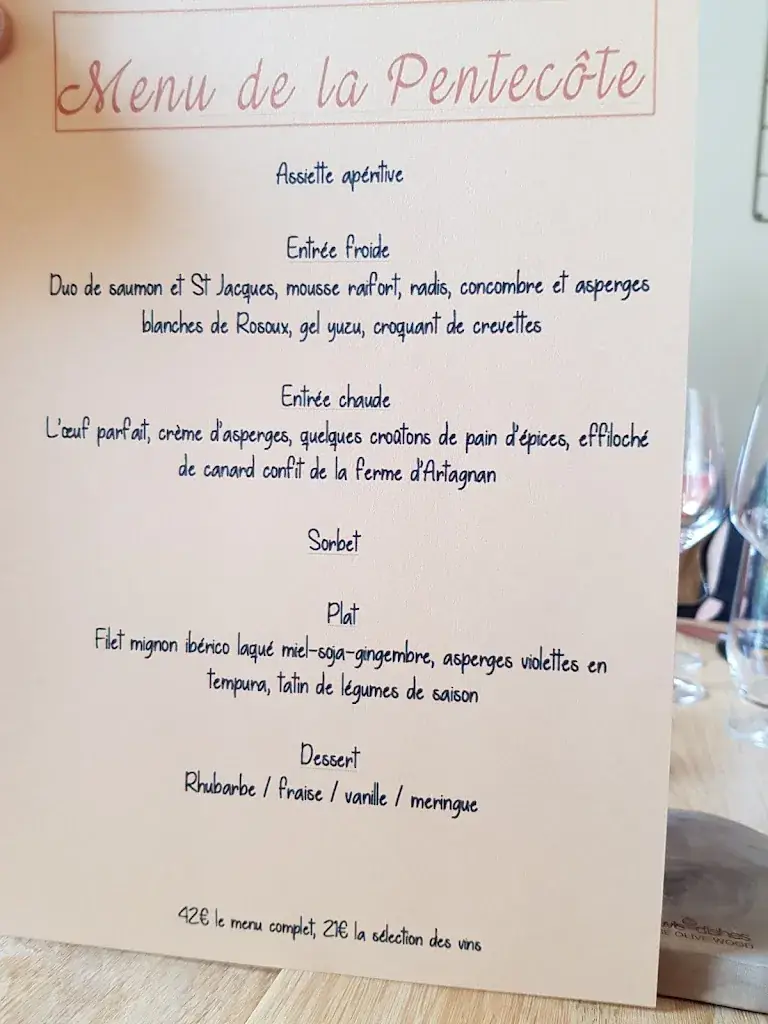 Menu de la Pentecôte
Assiette apéritive
Entrée froide
Duo de saumon et St Jacques, mousse raifort, radis, concombre et asperges
blanches de Rosoux, gel yuzu, croquant de crevettes
Entrée chaude
L'œuf parfait, crème d'asperges, quelques croûtons de pain d'épices, effiloché
de canard confit de la ferme d'Artagnan
Sorbet
Plat
Filet mignon ibérico laqué miel-soja-gingembre, asperges violettes en
tempura, tatin de légumes de saison
Dessert
Rhubarbe / fraise / vanille / meringue
42€ le menu complet, 21€ la sélection des vins
OLIVE WOOD